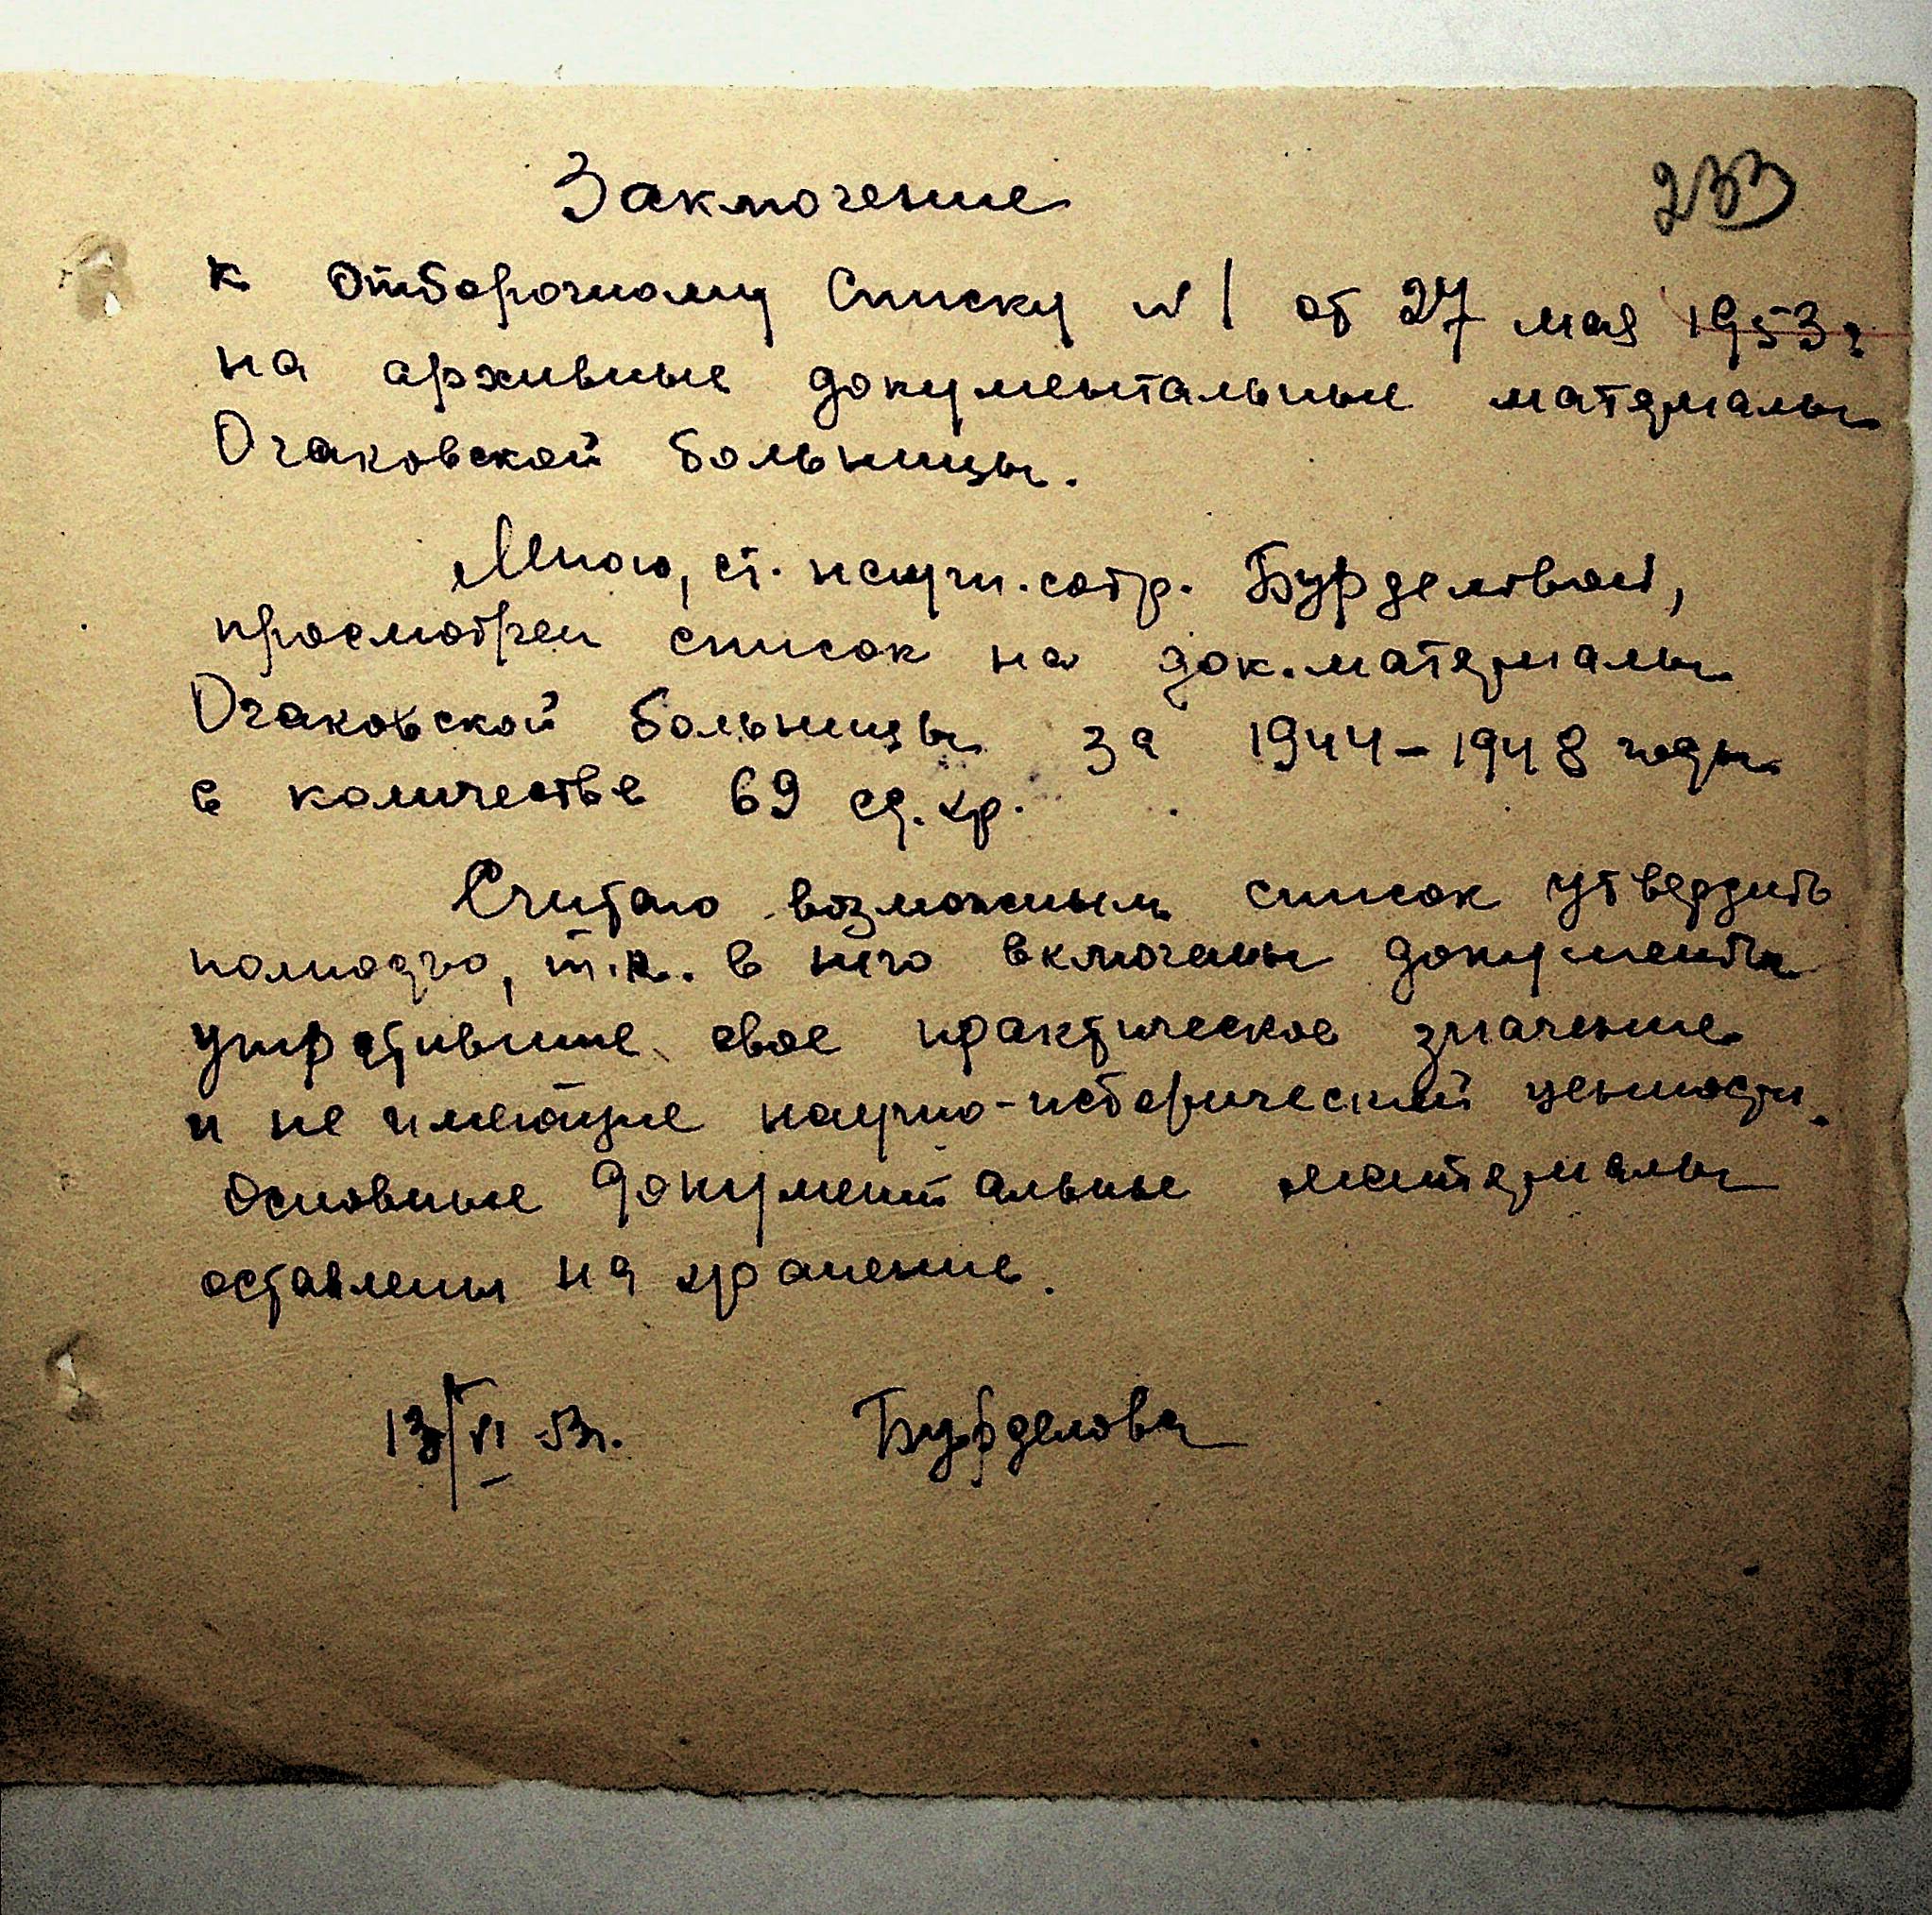 233
Заключение
к Отборочному Списку №1 от 27 мая 1953 г
на архивные документальные материалы
Очаковской больницы.
Мною, ст. научн. сотр. Бурделовой,
просмотрен список на док. материалы
Очаковской больницы за 1944-1948 годы
в количестве 69 ед. хр.
Считаю возможным список утвердить
полностью, т.к. в него включены документы
утратившие свое практическое значение
и не имеющие научно-исторический ценности.
Основные документальные материалы
оставлены на хранение.
13/VI 53г. Бурделова